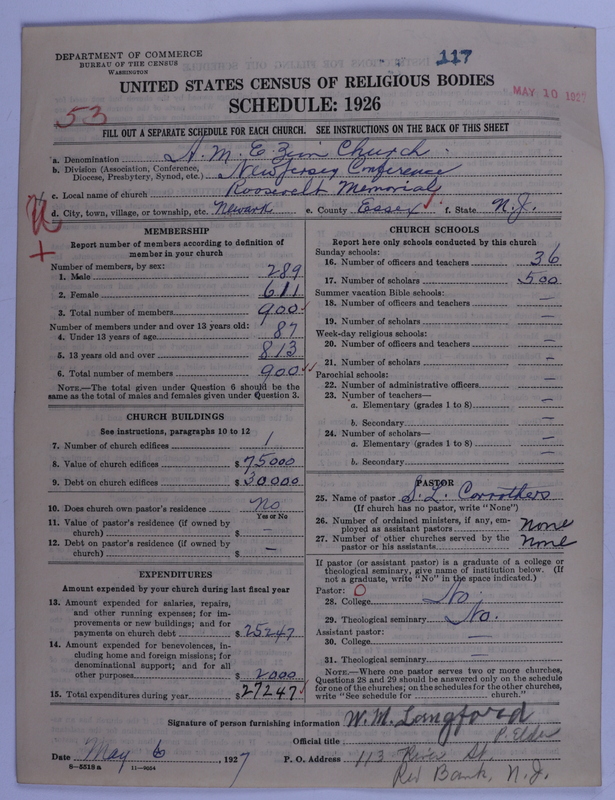 DEPARTMENT OF COMMERCE
BUREAU OF THE CENSUS
WASHINGTON
117
UNITED STATES CENSUS OF RELIGIOUS BODIES
SCHEDULE: 1926
MAY 10 1927
53
FILL OUT A SEPARATE SCHEDULE FOR EACH CHURCH. SEE INSTRUCTIONS ON THE BACK OF THIS SHEET
a. Denomination A. M. E. Zion Church
b. Division (Association, Conference, Diocese, Presbytery, Synod, etc.) New Jersey Conference
c. Local name of church Roosevelt Memorial
d. City, town, village, or township, etc. Newark e. County Essex f. State N.J.
MEMBERSHIP
Report number of members according to definition of member in your church
Number of members, by sex:
1. Male 289
2. Female 611
3. Total number of members 900
Number of members under and over 13 years old:
4. Under 13 years of age 87
5. 13 years old and over 813
6. Total number of members 900
NOTE.—The total given under Question 6 should be the
same as the total of males and females given under Question 3.
CHURCH BUILDINGS
See instructions, paragraphs 10 to 12
7. Number of church edifices 1
8. Value of church edifices $ 75000
9. Debt on church edifices $ 30,000
10. Does church own pastor's residence No
Yes or No
11. Value of pastor's residence (if owned by
church) $
12. Debt on pastor's residence (if owned by
church) $ —
EXPENDITURES
Amount expended by your church during last fiscal year
13. Amount expended for salaries, repairs,
and other running expenses; for im-
provements or new buildings; and for
payments on church debt $ 25247
14. Amount expended for benevolences, in-
cluding home and foreign missions; for
denominational support; and for all
other purposes $ 2000
15. Total expenditures during year $ 27247
CHURCH SCHOOLS
Report here only schools conducted by this church
Sunday schools:
16. Number of officers and teachers 36
17. Number of scholars 500
Summer vacation Bible schools:
18. Number of officers and teachers —
19. Number of scholars —
Week-day religious schools:
20. Number of officers and teachers —
21. Number of scholars —
Parochial schools:
22. Number of administrative officers —
23. Number of teachers—
a. Elementary (grades 1 to 8) —
b. Secondary —
24. Number of scholars—
a. Elementary (grades 1 to 8) —
b. Secondary —
PASTOR
25. Name of pastor S. L. Corrothers
(If church has no pastor, write "None")
26. Number of ordained ministers, if any, em-
ployed as assistant pastors None
27. Number of other churches served by the
pastor or his assistants None
If pastor (or assistant pastor) is a graduate of a college or
theological seminary, give name of institution below. (If
not a graduate, write "No" in the space indicated.)
Pastor: 0
28. College No.
29. Theological seminary No.
Assistant pastor:
30. College —
31. Theological seminary —
NOTE.—Where one pastor serves two or more churches,
Questions 28 and 29 should be answered only on the schedule
for one of the churches; on the schedules for the other churches,
write "See schedule for church."
Signature of person furnishing information W. M. Langford
Official title P. Elder
Date May 6, 1927 P. O. Address 113 River St.
8—5518a 11—9054 Red Bank, N.J.